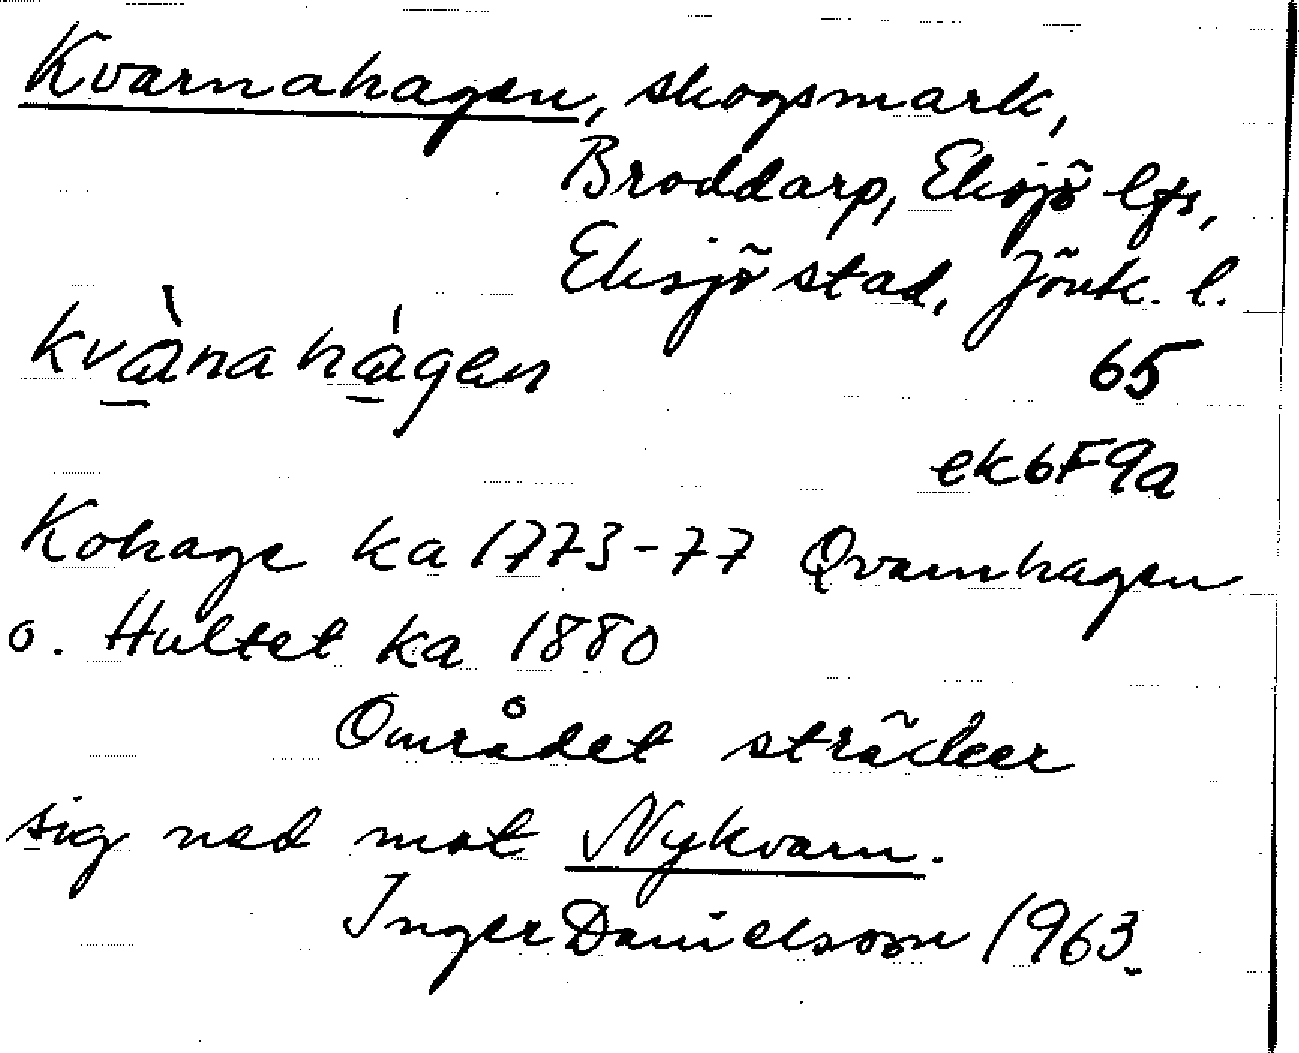 Kvarnahagen, skogsmark,
Broddarp, Eksjö lfs,
Eksjö stad, Jönk. l.
kvànahágen
65
ek6F9a
Kohage ka 1773-77 Qvarnhagen
o. Hultet ka 1880
Området sträcker
sig ned mot Nykvarn.
Inger Danielsson 1963.